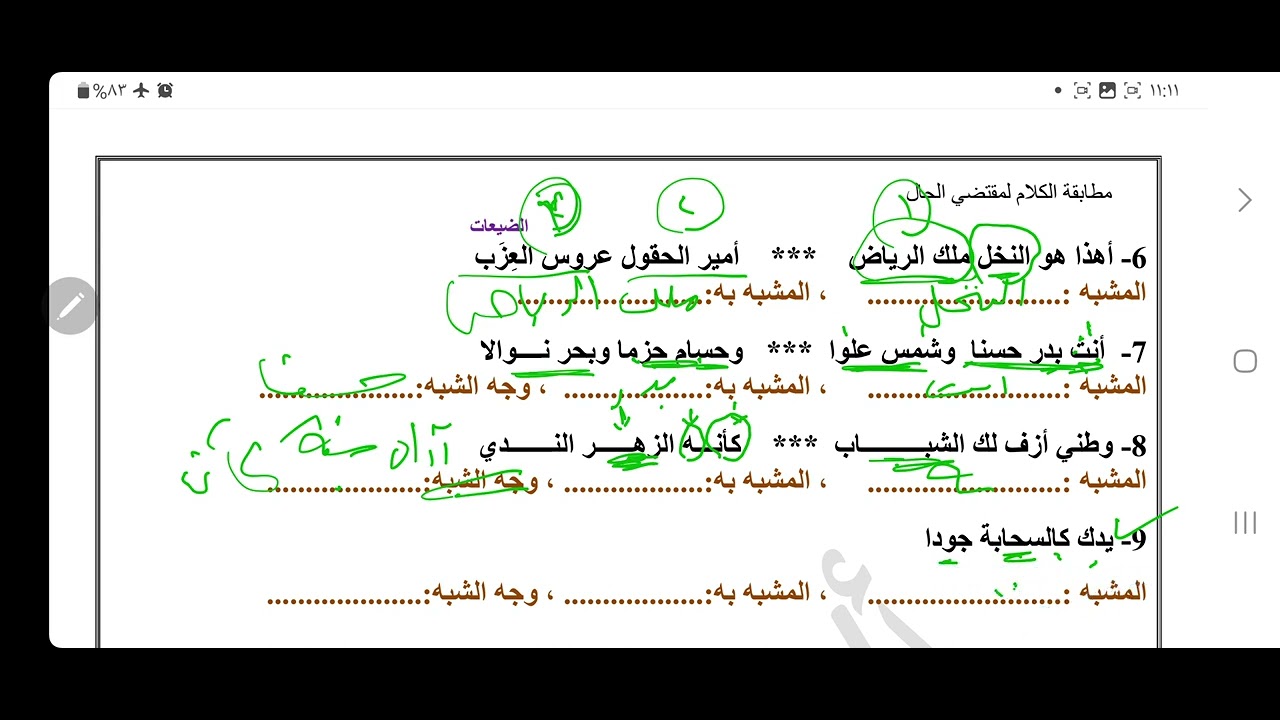 ١١:١١ %٨٣
مطابقة الكلام لمقتضي الحال
١ ٢ ٣
الضيعات
6- أهذا هو النخل ملك الرياض *** أمير الحقول عروس العِزَب
المشبه :......................... ، المشبه به:........................
النخل ملك الرياض
7- أنت بدر حسنا وشمس علوا *** وحسام حزما وبحر نـــوالا
المشبه :......................... ، المشبه به:.................. ، وجه الشبه:....................
انت بدر حسنا
8- وطني أزف لك الشبـــــــاب *** كأنـــه الزهـــــر النـــــدي
المشبه :......................... ، المشبه به:.................. ، وجه الشبه:....................
أداة
9- يدك كالسحابة جودا
المشبه :......................... ، المشبه به:.................. ، وجه الشبه:....................